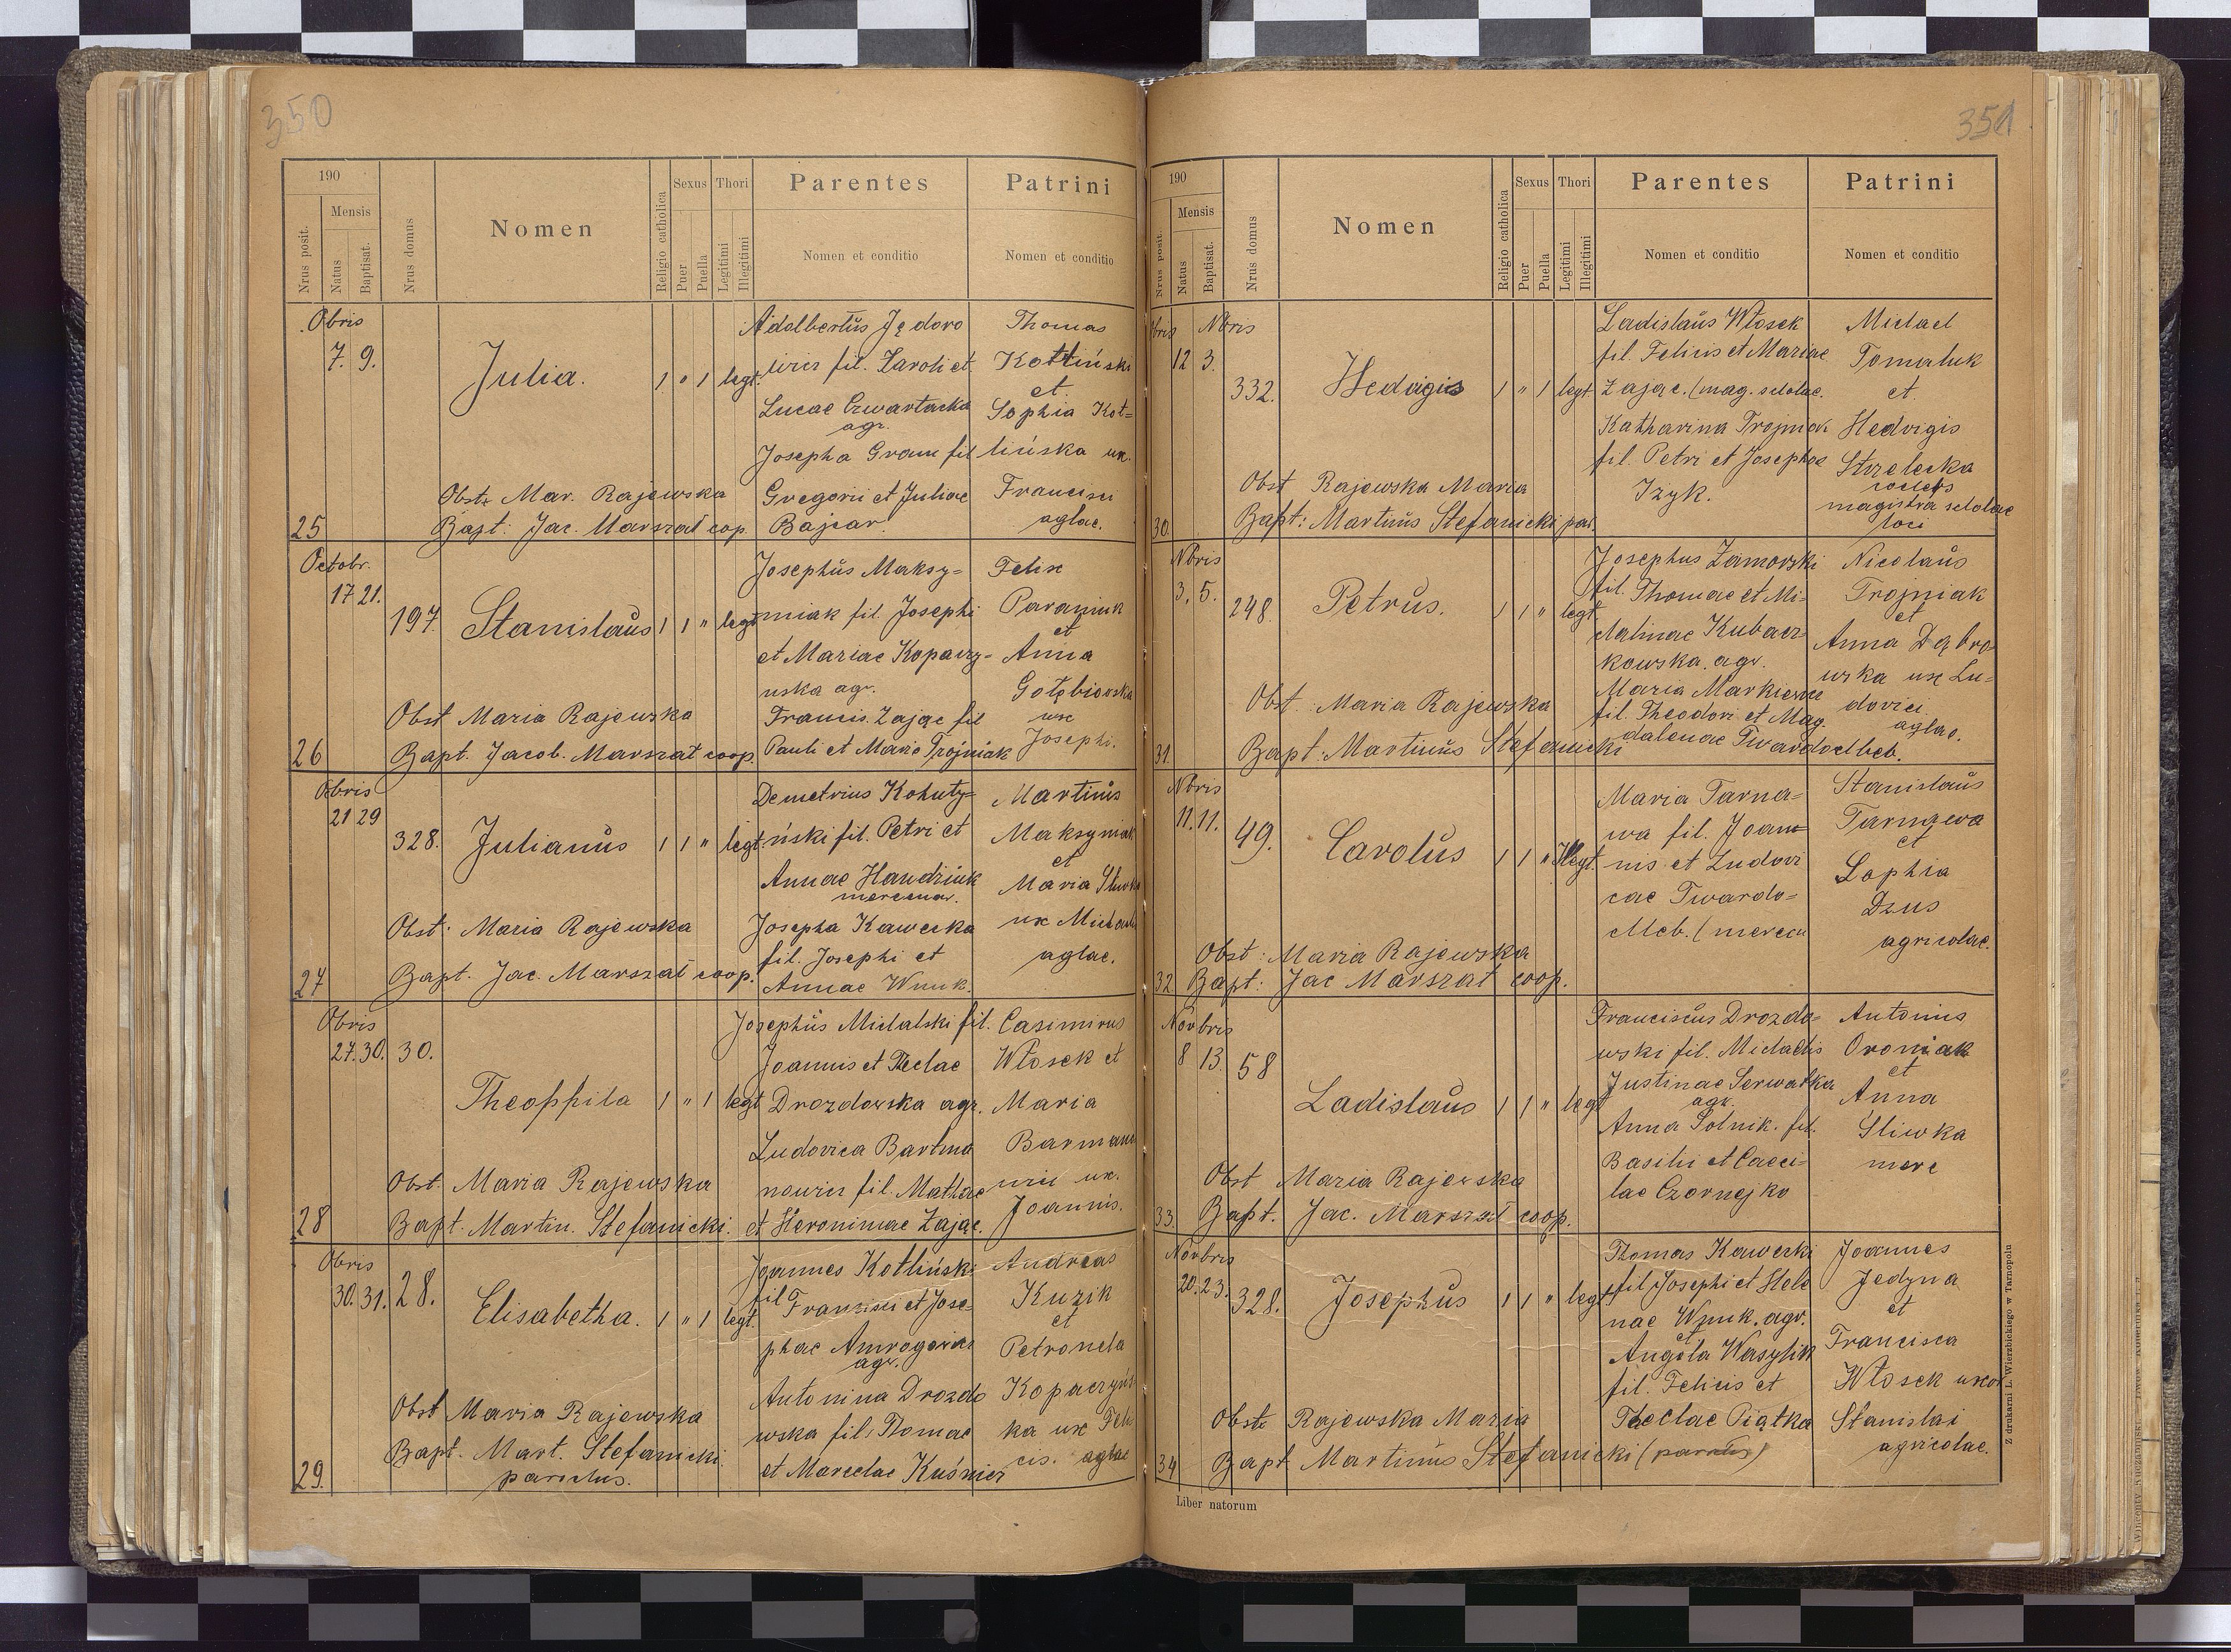 350
190
Mensis
Nrus posit.
Natus
Baptisat.
Nrus domus
Nomen
Religio catholica
Sexus
Puer
Puella
Thori
Legitimi
Illegitimi
Parentes
Nomen et conditio
Patrini
Nomen et conditio
Obris
7. 9.
Julia.
1 " 1 legt.
Adalbertus Jędoro
wicz fil. Karoli et
Lucae Czwartacka
agr.
Josepha Gram fil
Gregorii et Juliae
Bajcar
Thomas
Kotliński
et
Sophia Kot=
lińska ux.
Francisci
aglae.
Obst. Mar. Rajewska
25 Bapt: Jac. Marszał cop.
Octobr.
17 21.
197.
Stanislaus
1 1 " legt
Josephus Maksy=
miak fil. Josephi
et Mariae Kopaczy=
nska agr.
Francis. Zając fil
Pauli et Mariae Trojniak
Felix
Paraniuk
et
Anna
Gołębiowska
ux
Josephi.
Obst Maria Rajewska
26 Bapt. Jacob. Marszał coop.
Obris
21 29
328.
Julianus
1 1 " legt
Demetrius Kohuty=
ński fil. Petri et
Annae Handziuk
mercenar.
Josepha Kawecka
fil. Josephi et
Annae Wnuk.
Martinus
Maksymiak
et
Maria
ux Michaeli
aglae.
Obst: Maria Rajewska
27 Bapt. Jac. Marszał coop.
Obris
27. 30. 30.
Theophila
1 " 1 legt
Josephus Michalski fil.
Joannis et Theclae
Drozdowska agr.
Ludovica Bartma
nowicz fil. Mathae
et Heronimae Zając.
Casimirus
Włosek et
Maria
ux.
Joannis.
Obst. Maria Rajewska
28 Bapt. Martin. Stefanicki.
Obris
30. 31. 28.
Elisabetha.
1 " 1 legt.
Joannes Kotliński
fil Francisci et Jose=
phae
agr.
Antonina Drozdo
wska fil. Thomae
et Marcelae Kuśnier
Andreas
Kuzik
et
Petronela
Kopaczyńs
ka ux Feli
cis. aglae
Obst Maria Rajewska
Bapt. Mart. Stefanicki.
29. parochus.
351
190
Mensis
Nrus posit.
Natus
Baptisat.
Nrus domus
Nomen
Religio catholica
Sexus
Puer
Puella
Thori
Legitimi
Illegitimi
Parentes
Nomen et conditio
Patrini
Nomen et conditio
Obris Nbris
12 3.
332.
Hedvigis
1 " 1 legt
Ladislaus Włosek
fil. Felicis et Mariae
Zając. (mag. scholae.
Katharina Trojniak
fil. Petri et Josephae
Izyk.
Michael
Tomaluk
et.
Hedvigis
Strzelecka
magistra scholae
loci
Obst Rajewska Maria
30. Bapt: Martinus Stefanicki par.
Nbris
3. 5.
248.
Petrus.
1 1 " legt
Josephus Zamorski
fil. Thomae et Mi=
chalinae Kubacz
kowska. agr.
Maria Markiewicz
fil. Theodori et Mag.
dalenae Twardochleb.
Nicolaus
Trojniak
et
Anna Dąbro
wska ux Lu=
dovici
aglae.
Obst. Maria Rajewska
31. Bapt. Martinus Stefanicki
Nbris
11. 11.
49.
Carolus
1 1 " Illegt.
Maria Tarna=
wa fil. Joan=
nis et Ludovi
cae Twardo=
chleb. (mercen
Stanislaus
Tarnawa
et
Sophia
Dzus
agricolae.
Obst: Maria Rajewska
32 Bapt: Jac Marszał coop.
Novbris
8 13.
58
Ladislaus
1 1 " legt
Franciscus Drozdo=
wski fil. Michaelis
Justinae Serwatka
agr.
Anna Solnik. fil.
Basilii et Caeci=
lae Czornejko
Antonius
Oroniak
et
Anna
Śliwka
merc
Obst Maria Rajewska
33. Bapt. Jac. Marszał coop.
Novbris
20. 23.
328.
Josephus
1 1 " legt
Thomas Kawecki
fil Josephi et Hele
nae Wnuk. agr.
et
Angela Wasylik
fil. Felicis et
Theclae Piątka
Joannes
Jedyna
et
Francisca
Włosek uxor
Stanislai
agricolae.
Obst. Rajewska Maria
34 Bapt Martinus Stefanicki (parochus)
Liber natorum
Z drukarni L. Wierzbickiego w Tarnopolu